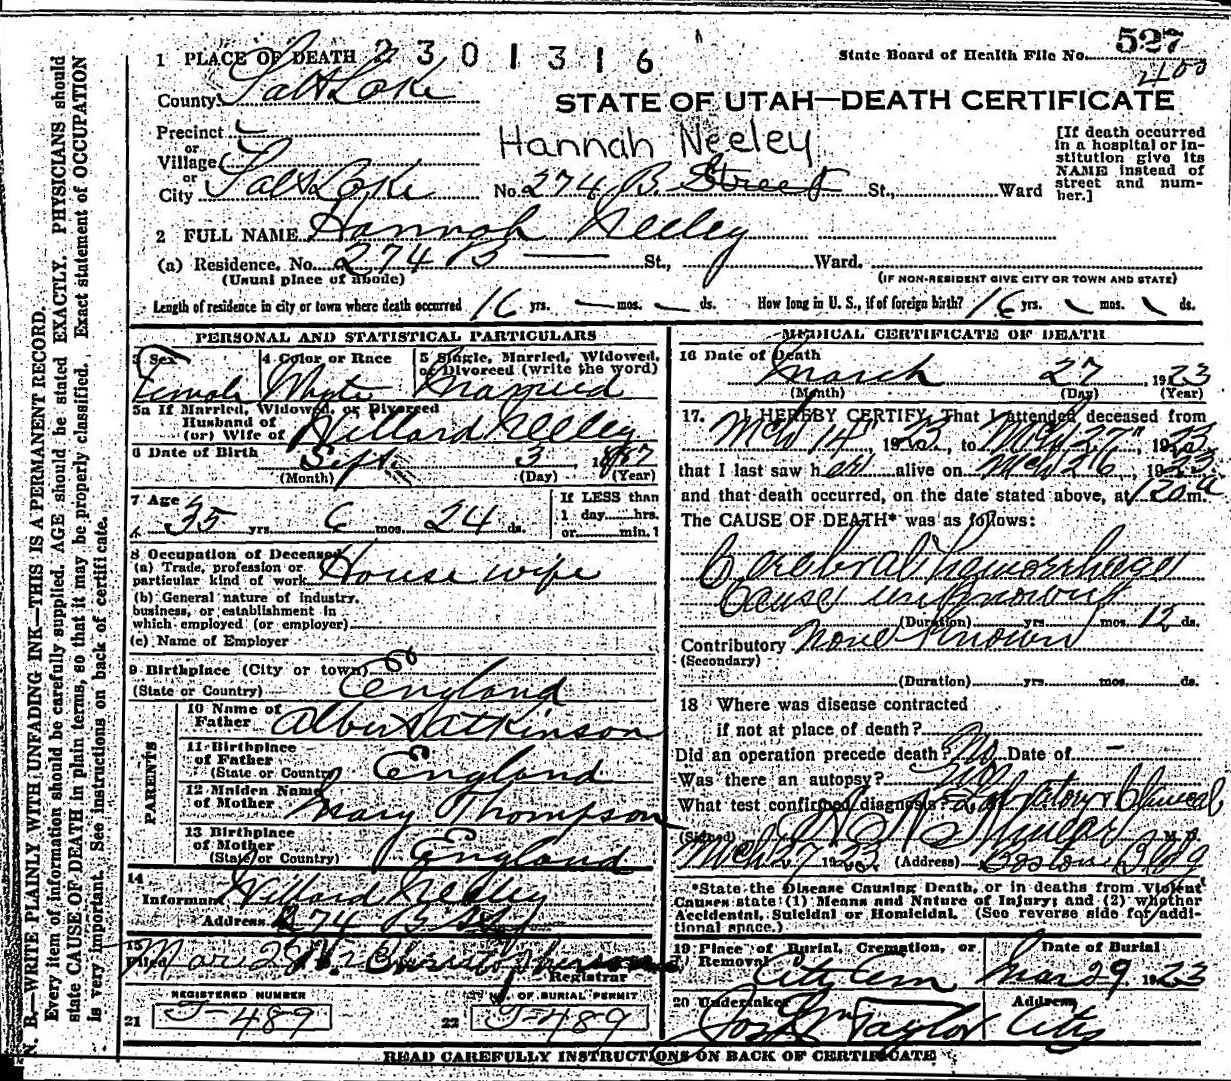 527
1 PLACE OF DEATH 2301316 State Board of Health File No.
400
County Salt Lake STATE OF UTAH—DEATH CERTIFICATE
Precinct
or
Village
or
City Salt Lake No. 274 B Street St., Ward
Hannah Neeley
[If death occurred
in a hospital or in-
stitution give its
NAME instead of
street and num-
ber.]
2 FULL NAME Hannah Neeley
(a) Residence. No. 274 B St., Ward.
(Usual place of abode) (IF NON-RESIDENT GIVE CITY OR TOWN AND STATE)
Length of residence in city or town where death occurred 16 yrs. — mos. — ds. How long in U. S., if of foreign birth? 16 yrs. mos. ds.
PERSONAL AND STATISTICAL PARTICULARS
3 Sex 4 Color or Race 5 Single, Married, Widowed,
or Divorced (write the word)
Female Whyte Married
5a If Married, Widowed, or Divorced
Husband of
(or) Wife of Willard Neeley
6 Date of Birth Sept. 3, 1887
(Month) (Day) (Year)
7 Age 35 yrs. 6 mos. 24 ds. If LESS than
1 day....hrs.
or....min.
8 Occupation of Deceased
(a) Trade, profession or
particular kind of work House wife
(b) General nature of industry.
business, or establishment in
which employed (or employer)
(c) Name of Employer
9 Birthplace (City or town)
(State or Country) England
PARENTS
10 Name of
Father Albert Atkinson
11 Birthplace
of Father
(State or Country) England
12 Maiden Name
of Mother Mary Thompson
13 Birthplace
of Mother
(State/or Country) England
14
Informant Willard Neeley
Address 274 B St
15
Filed Mar 28
Registrar
REGISTERED NUMBER NO. OF BURIAL PERMIT
21 T-489 22 T-489
MEDICAL CERTIFICATE OF DEATH
16 Date of Death
March 27, 1923
(Month) (Day) (Year)
17. I HEREBY CERTIFY, That I attended deceased from
Mch 14", 1923, to Mch 27", 1923
that I last saw her alive on Mch 26, 1923
and that death occurred, on the date stated above, at 120 a m.
The CAUSE OF DEATH* was as follows:
Cerebral hemorrhage
Cause unknown
(Duration) yrs. mos. 12 ds.
Contributory None Known
(Secondary)
(Duration) yrs. mos. ds.
18 Where was disease contracted
if not at place of death?
Did an operation precede death? No Date of —
Was there an autopsy?
What test confirmed diagnosis? Laboratory & Clinical
(Signed) M. D.
Mch 27 1923 (Address) Boston Bldg
*State the Disease Causing Death, or in deaths from Violent
Causes state (1) Means and Nature of Injury; and (2) whether
Accidental, Suicidal or Homicidal. (See reverse side for addi-
tional space.)
19 Place of Burial, Cremation, or Date of Burial
Removal
City Cem Mar 29 1923
20 Undertaker Address
Jos Wm Taylor City
READ CAREFULLY INSTRUCTIONS ON BACK OF CERTIFICATE
N. B.—WRITE PLAINLY WITH UNFADING INK—THIS IS A PERMANENT RECORD.
Every item of information should be carefully supplied. AGE should be stated EXACTLY. PHYSICIANS should
state CAUSE OF DEATH in plain terms, so that it may be properly classified. Exact statement of OCCUPATION
is very important. See instructions on back of certificate.